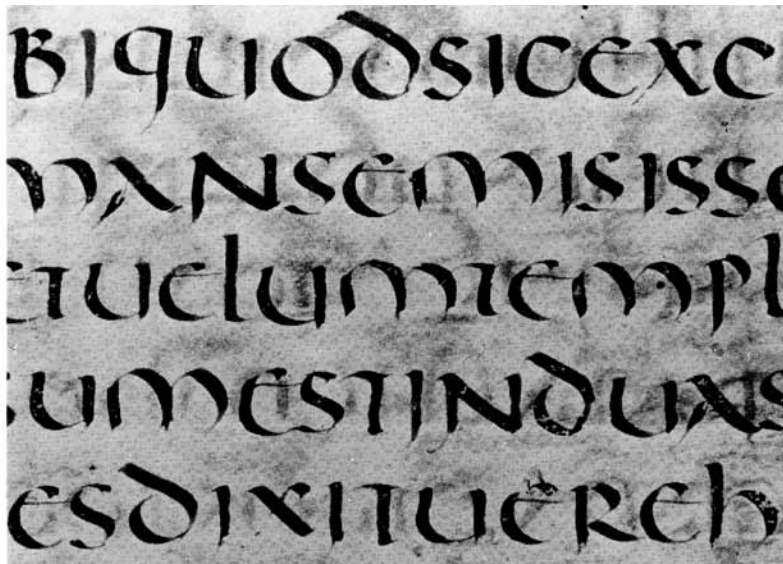 BIQUODSICEXC
MANSEMISISSE
ETUELUMTEMPL
SUMESTINDUAS
ESDIXITUEREH